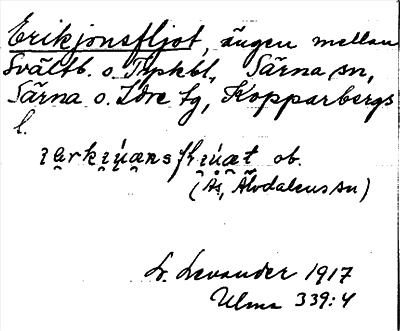 Erikjonsfljot, ängen mellan
Svältb. o. Trykbl., Särna sn,
Särna o. Idre tg, Kopparbergs
l.
ob.
(Ås, Älvdalens sn)
L. Levander 1917
Ulma 339:4